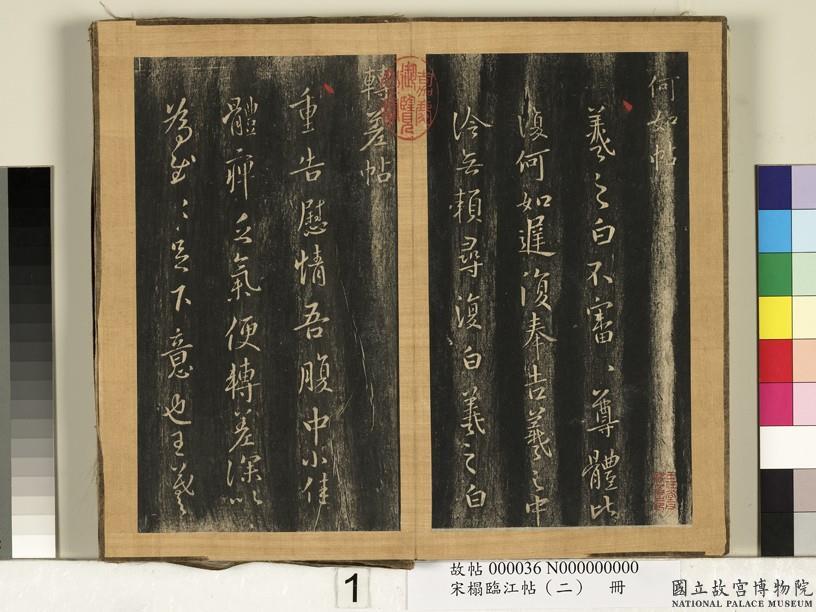 何如帖
羲之白不審、尊體比
復何如遲復奉告羲之中
冷無賴尋復白羲之白
轉差帖
重告慰情吾腹中小佳
體痱乏氣便轉差深以
為慰〻足下意也王羲
1
故帖 000036 N000000000
宋榻臨江帖(二) 冊
國立故宮博物院
NATIONAL PALACE MUSEUM